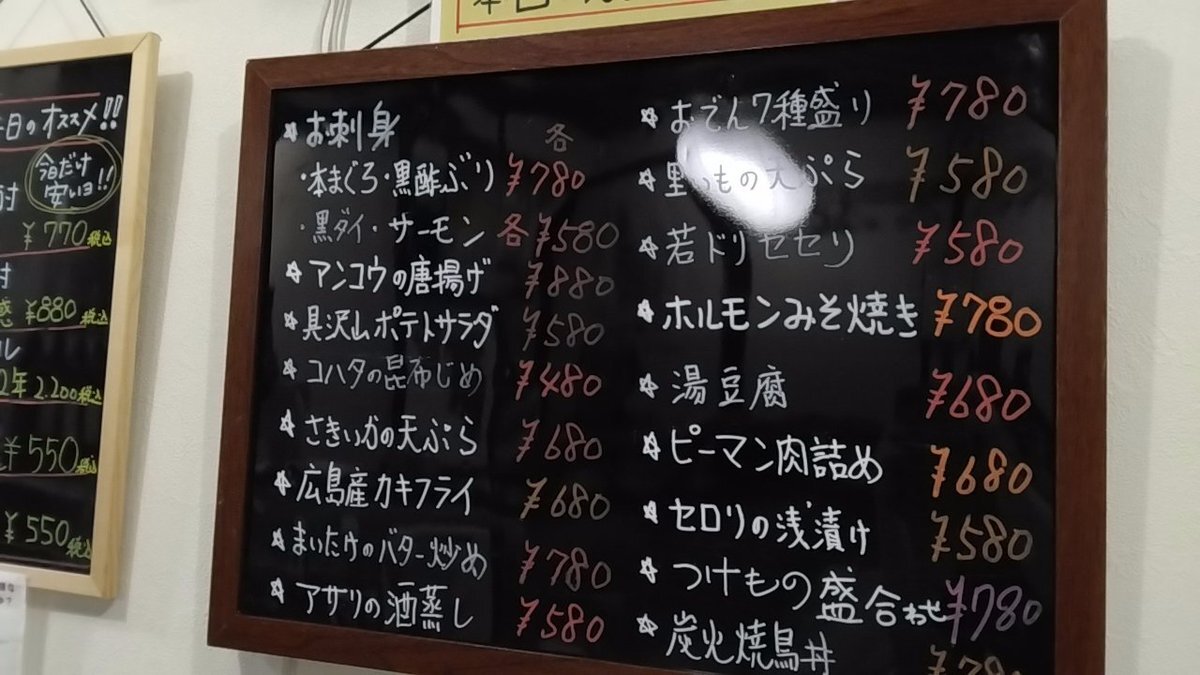 本日
本日のオススメ!!
今だけ
安いヨ!!
¥770税込
¥880税込
2.200税込
¥550税込
¥550税込
☆お刺身 各
・本まぐろ・黒酢ぶり ¥780
・黒ダイ・サーモン 各¥580
☆アンコウの唐揚げ ¥880
☆具沢山ポテトサラダ ¥580
☆コハダの昆布じめ ¥480
☆さきいかの天ぷら ¥680
☆広島産カキフライ ¥680
☆まいたけのバター炒め ¥780
☆アサリの酒蒸し ¥580
☆おでん7種盛り ¥780
☆里いもの天ぷら ¥580
☆若ドリセセリ ¥580
☆ホルモンみそ焼き ¥780
☆湯豆腐 ¥680
☆ピーマン肉詰め ¥680
☆セロリの浅漬け ¥580
☆つけもの盛合わせ ¥780
☆炭火焼鳥丼 ¥780